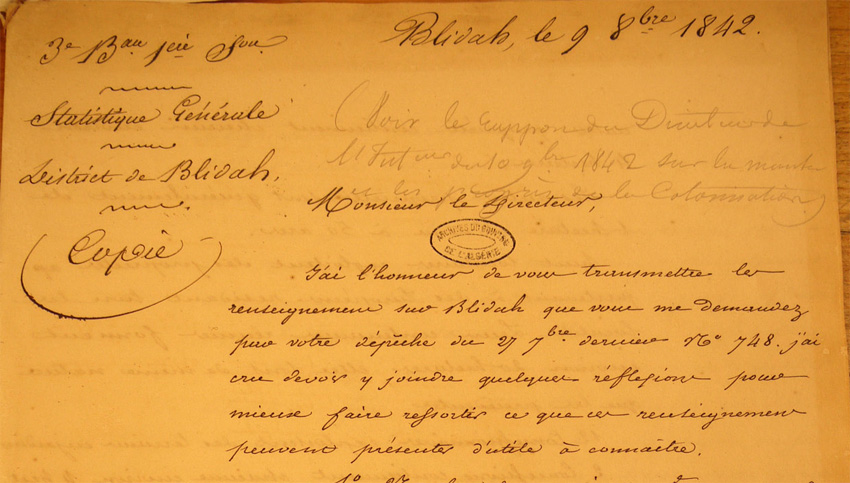 Blidah, le 9 8bre 1842.
3e Bau 1ère Son
Statistique Générale
District de Blidah.
Copie
(Voir le rapport du Directeur de
l'Intr du 10 9bre 1842 sur la
et les progrès de la Colonisation)
Monsieur le Directeur,
ARCHIVES DU GOUVNE
DE L'ALGÉRIE
J'ai l'honneur de vous transmettre les
renseignements sur Blidah que vous me demandez
par votre dépêche du 27 7bre dernier No 748. j'ai
cru devoir y joindre quelques réflexions pour
mieux faire ressortir ce que ces renseignements
peuvent présenter d'utile à connaître.
1o